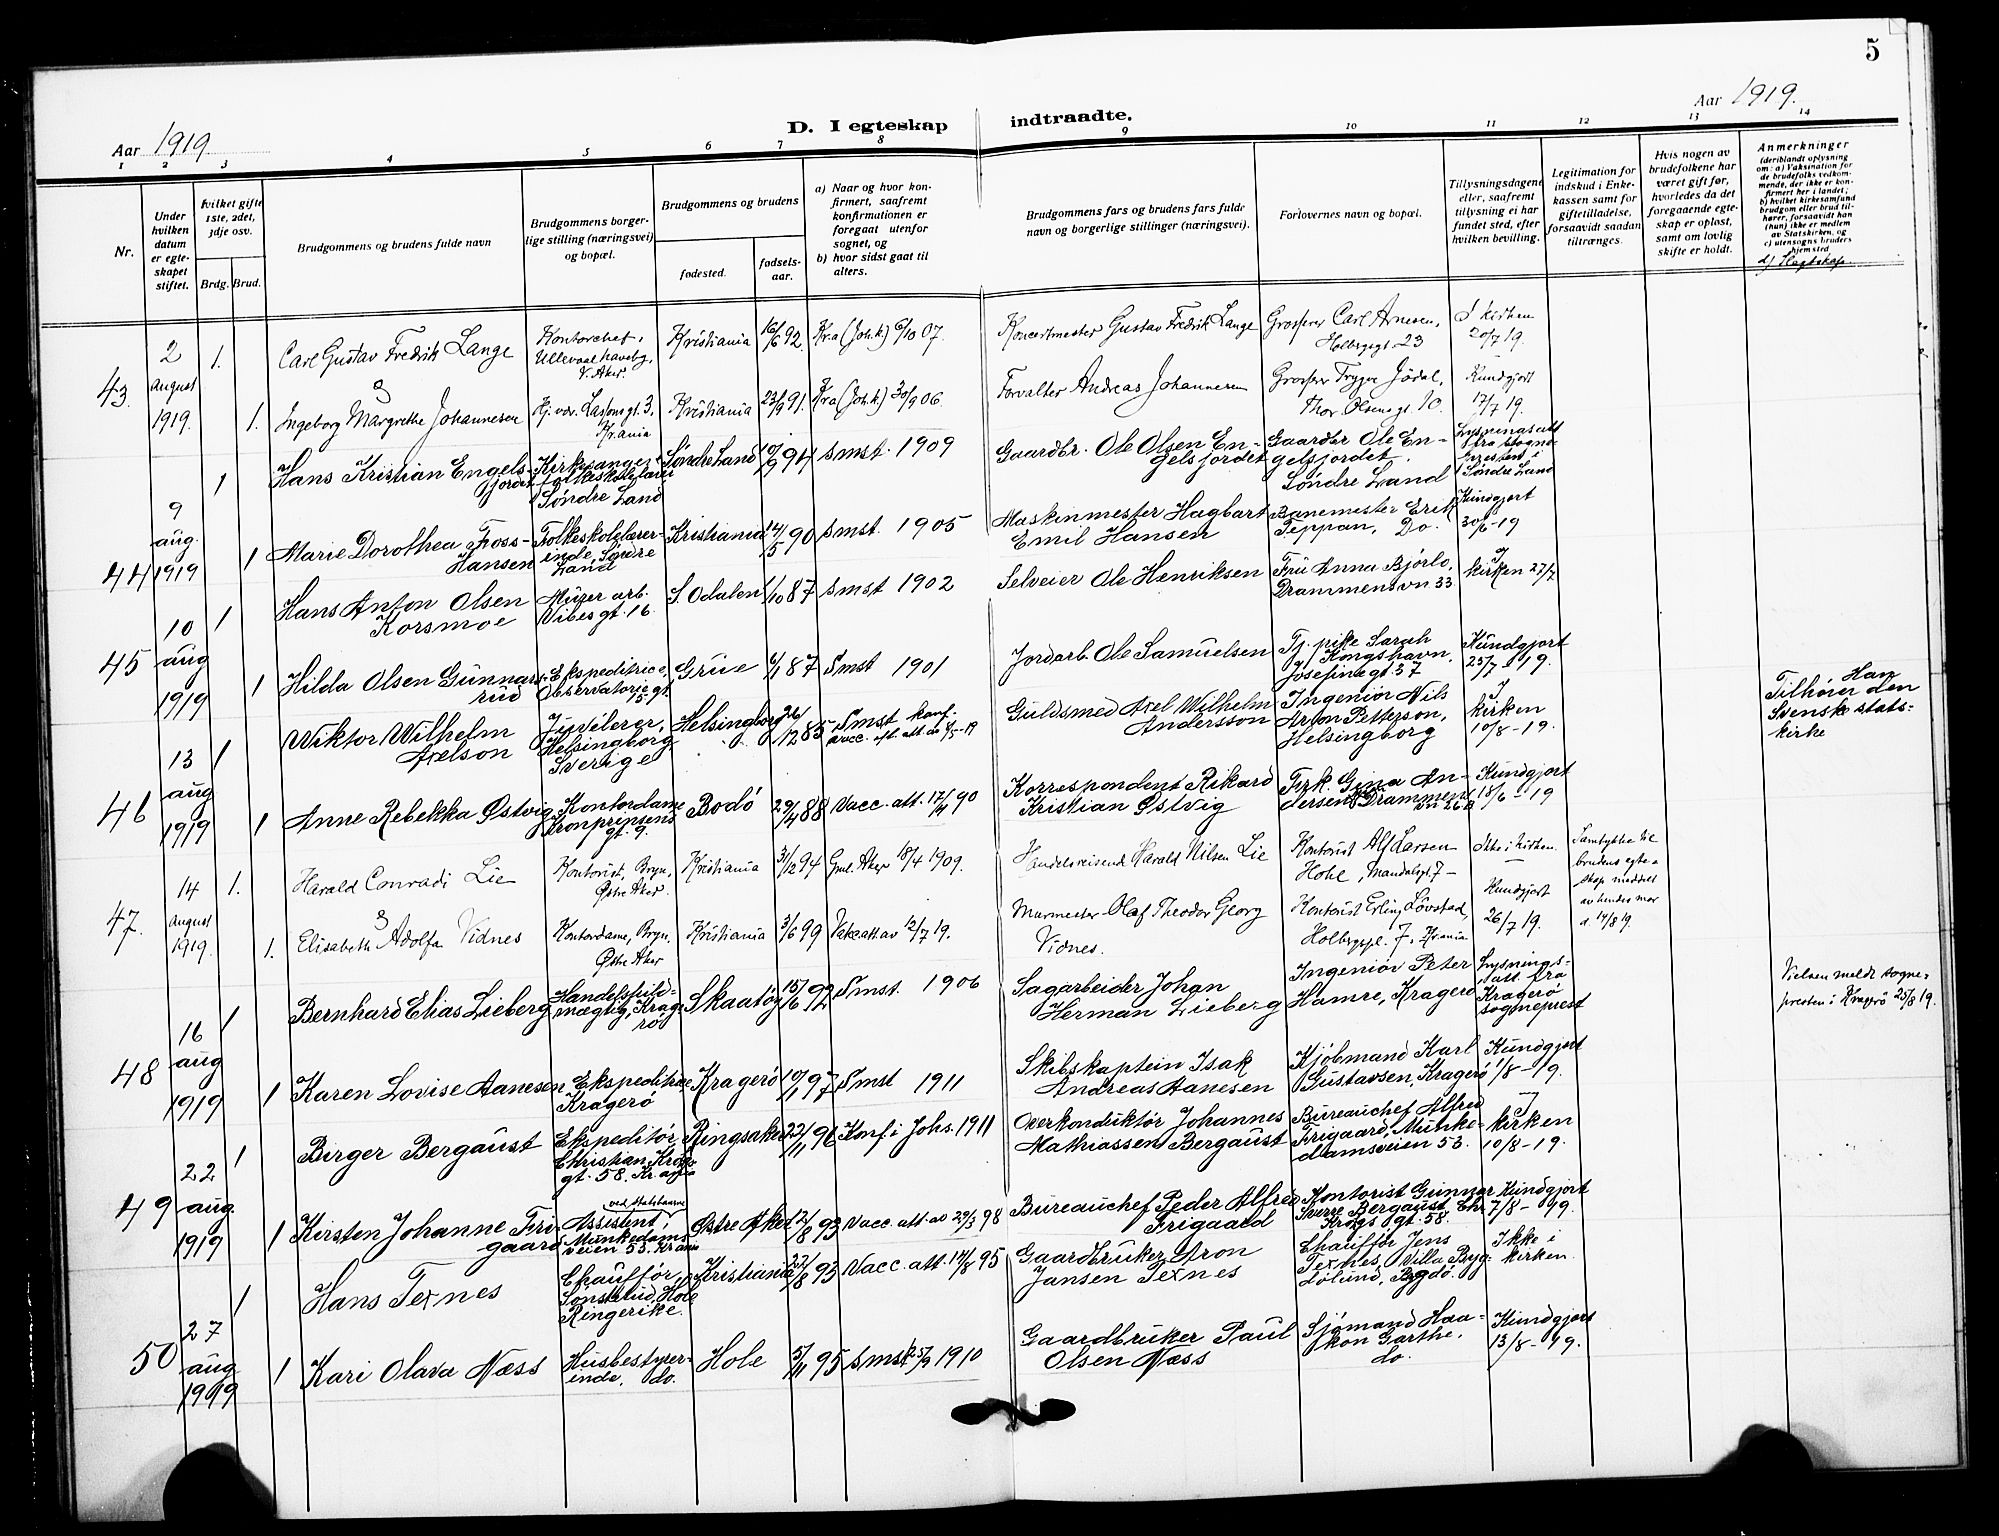 5
Aar 1919
D. I egteskap indtraadte.
Aar 1919.
1 2 3 4 5 6 7 8 9 10 11 12 13 14
Nr.
Under
hvilken
datum
er egte-
skapet
stiftet.
Hvilket gifte
1ste, 2det,
3dje osv.
Brdg.
Brud.
Brudgommens og brudens fulde navn
Brudgommens borger-
lige stilling (næringsvei)
og bopæl.
Brudgommens og brudens
fødested.
fødsels-
aar.
a) Naar og hvor kon-
firmert, saafremt
konfirmationen er
foregaat utenfor
sognet, og
b) hvor sidst gaat til
alters.
Brudgommens fars og brudens fars fulde
navn og borgerlige stillinger (næringsvei).
Forlovernes navn og bopæl.
Tillysningsdagene
eller, saafremt
tillysning ei har
fundet sted, efter
hvilken bevilling.
Legitimation for
indskud i Enke-
kassen samt for
giftetilladelse,
forsaavidt saadan
tiltrænges.
Hvis nogen av
brudefolkene har
været gift før,
hvorledes da det
foregaaende egte-
skap er opløst,
samt om lovlig
skifte er holdt.
Anmerkninger
(deriblandt oplysning
om: a) Vaksination for
de brudefolks vedkom-
mende, der ikke er kon-
firmert her i landet;
b) hvilket kirkesamfund
brudgom eller brud til-
hører, forsaavidt han
(hun) ikke er medlem
av Statskirken, og
c) utensogns bruders
hjemsted
d) Slegtskap.
43.
2
August
1919.
1.
Carl Gustav Fredrik Lange
Kontorchef,
Ullevaal haveby,
V. Aker.
Kristiania
16/6 92.
Kr.a (Joh.k) 6/10 07.
Koncertmester Gustav Fredrik Lange
Grosserer Carl Arnesen,
Holbergsgt. 23
I kirken
20/7 19.
&
1.
Ingeborg Margrethe Johannesen
Hj. vær. Lassonsgt. 3,
Kr.ania
Kristiania
23/9 91.
Kr.a (Joh.k.) 30/9 06.
Forvalter Andreas Johannesen
Grosserer Trygve Jödal,
Thor Olsens gt. 10.
Kundgjort
17/7 19.
44
9
aug.
1919
1
Hans Kristian Engels-
jordet
Kirkesanger
folkeskolelærer
Søndre Land
Søndre Land
10/9 94
Smst. 1909
Gaardbr. Ole Olsen En-
gelsjordet
Gaardbr Ole En-
gelsjordet.
Søndre Land
Lysningsatt
fra sogne-
presten i
Søndre Land
1
Marie Dorothea Foss-
Hansen
Folkeskolelærer-
inde, Søndre
Land
Kristiania
14/5 90
Smst. 1905
Maskinmester Hagbart
Emil Hansen
Banemester Erik
Teppan, Do.
Kundgjort
30/6-19
45
10
aug
1919
1
Hans Anton Olsen
Korsmoe
Murer arb.
Vibes gt. 16
S. Odalen
1/10 87
Smst 1902
Selveier Ole Henriksen
Fru Anna Bjørlo,
Drammensvn 33.
I
kirken 27/7
1
Hilda Olsen Gunnars-
rud
Ekspeditrice,
Observatorie gt
15.
Grue
6/1 87
Smst 1901
Jordarb. Ole Samuelsen
Tj. pike Sarah
Kongshavn,
Josefines gt 37
Kundgjort
25/7-19.
46
13
aug
1919
1
Wiktor Wilhelm
Axelson
Juvelerer,
Helsingborg
Sverige
Helsingborg
26/12 85
Smst konf.
Guldsmed Axel Wilhelm
Andersson
Ingeniør Nils
Aron Petterson,
Helsingborg
I
kirken
10/8-19.
Han
Tilhører den
Svenske stats-
kirke
1
Anne Rebekka Østvig
Kontordame
Kronprinsens
gt. 9.
Bodö
29/4 88
Vacc. att. 17/4 90
Korrespondent Rikard
Kristian Østvig
Frk. Gina An-
dersen, Drammens
vn 26 B
Kundgjort
18/6-19
47.
14
August
1919.
1.
Harald Conradi Lie
Kontorist, Bryn,
Østre Aker.
Kristiania
31/2 94
Gml. Aker 18/4 1909.
Handelsreisend Harald Nilsen Lie
Kontorist Alf Larsen
Hohle, Mandalsgt. 7 -
Ikke i kirken.
Samtykke til
brudens egte-
skap meddelt
av hendes mor
d. 14/8 19.
&
1.
Elisabeth Adolfa Vidnes
Kontordame, Bryn,
Østre Aker
Kristiania
3/6 99
Vakc. att. av 12/7 19.
Murmester Olaf Theodor Georg
Vidnes.
Kontorist Erling Lövstad,
Holbergspl. 7, Kr.ania
Kundgjort
26/7 19.
48
16
aug
1919
1
Bernhard Elias Lieberg
Handelsfuld-
mægtig, Krage-
rø
Skaatøy
15/6 92
Smst. 1906
Sagarbeider Johan
Herman Lieberg
Ingeniør Peter
Hamre, Kragerø
Lysnings-
att. fra
Kragerø
sogneprest
Vielsen meldt sogne-
presten i Kragerö 25/8 19.
1
Karen Lovise Aanesen
Ekspeditrice
Kragerø
Kragerø
10/1 97
Smst 1911
Skibskaptein Isak
Andreas Aanesen
Kjøbmand Karl
Gustavsen, Kragerø
Kundgjort
1/8-19.
49
22
aug.
1919
1
Birger Bergaust
Ekspeditør,
Christian Krogs
gt. 58. Kr.ania
Ringsaker
22/11 96
Konf. i Johs. 1911
Overkonduktør Johannes
Mathiassen Bergaust
Bureauchef Alfred
Frigaard, Munke-
damsveien 53.
I
kirken
10/8-19.
1
Kirsten Johanne Fri-
gaard
ved statsbanerne
Assistent,
Munkedams-
veien 53. Kr.ania
Østre Aker
12/8 93
Vacc. att. av 29/3 98
Bureauchef Peder Alfred
Frigaard
Kontorist Gunnar
Sverre Bergaust, Chr
Krogs gt. 58.
Kundgjort
7/8-19.
50
27
aug
1919
1
Hans Texnes
Chauffør
Hole
Ringerike.
Kristiania
22/8 93
Vacc. att. 14/8 95
Gaardbruker Aron
Jansen Texnes
Chauffør Jens
Texnes, Villa Byg-
Lølund, Bygdø.
Ikke i
kirken.
1
Kari Olava Næss
Husbestyrer-
inde, do.
Hole
5/11 95
Smst 25/9 1910
Gaardbruker Paul
Olsen Næss
Sjømand Haa-
kon Garthe,
do.
Kundgjort
13/8-19.